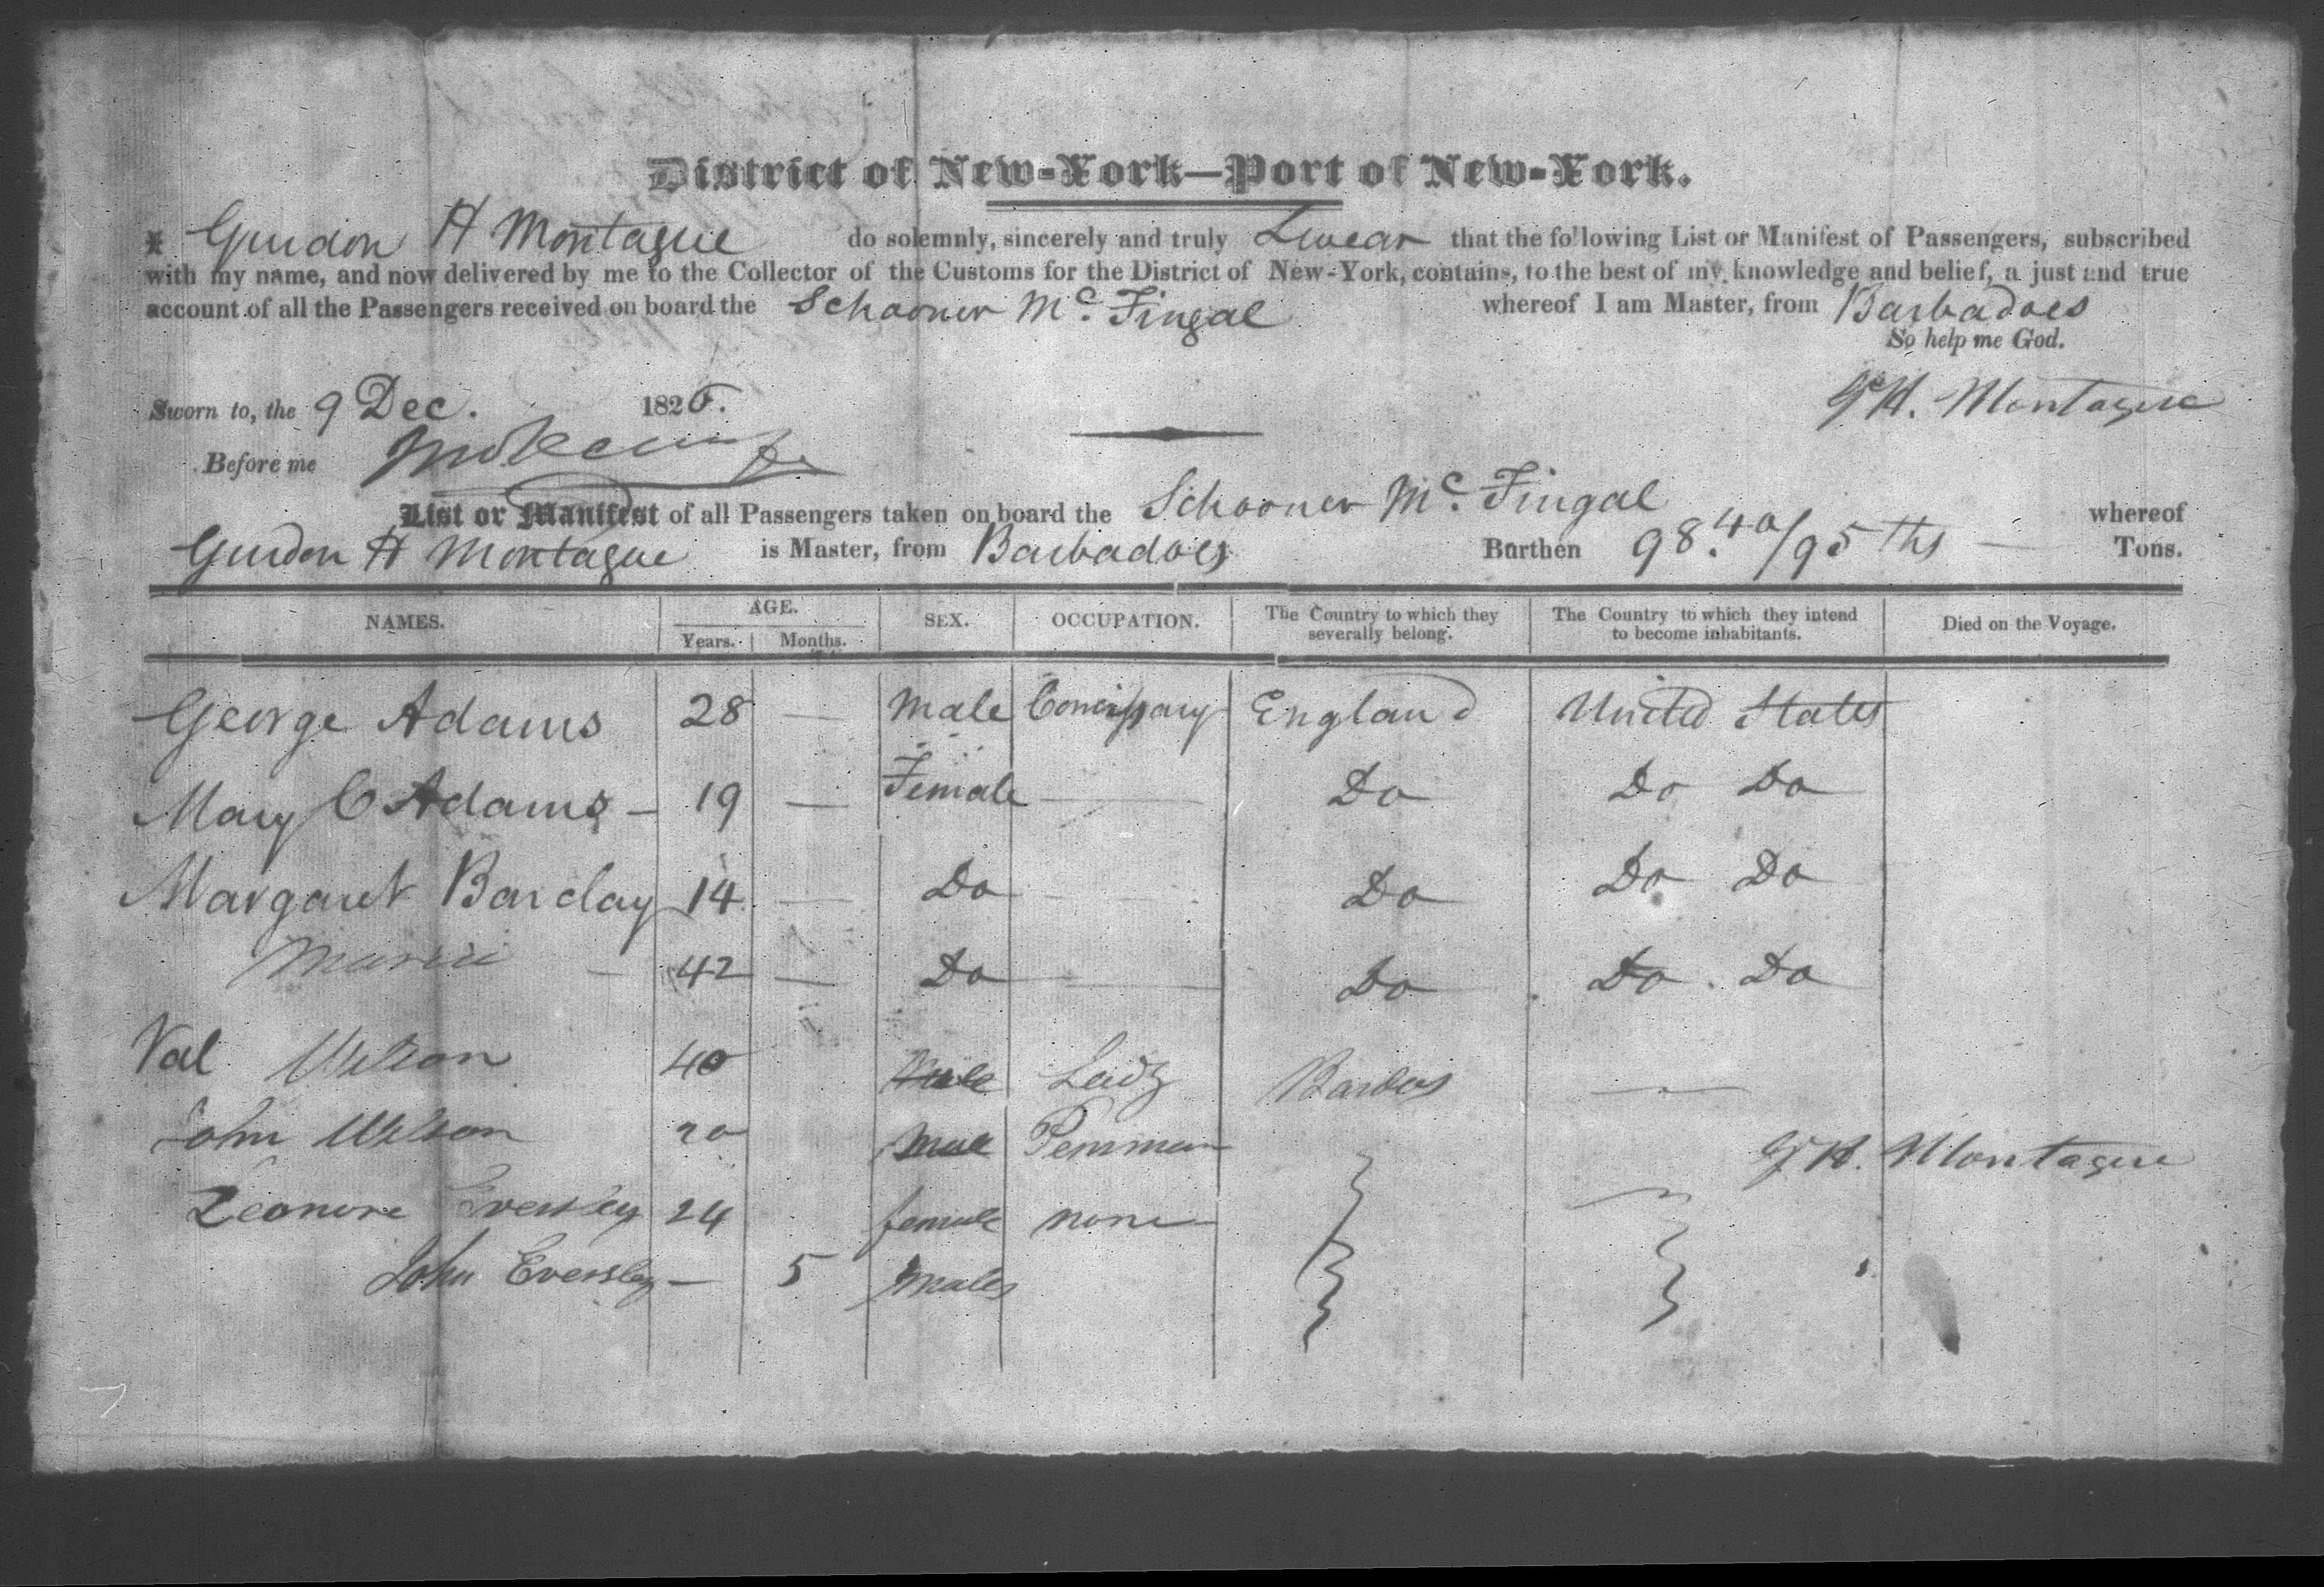 District of New-York—Port of New-York.
I Gurdon H Montague do solemnly, sincerely and truly Swear that the following List or Manifest of Passengers, subscribed
with my name, and now delivered by me to the Collector of the Customs for the District of New-York, contains, to the best of my knowledge and belief, a just and true
account of all the Passengers received on board the Schooner Mc. Fingal whereof I am Master, from Barbadoes
So help me God.
Sworn to, the 9 Dec. 1826. G H. Montague
Before me
List or Manifest of all Passengers taken on board the Schooner Mc Fingal whereof
Gurdon H Montague is Master, from Barbadoes Burthen 98. 40/95 ths Tons.
NAMES. AGE. Years. Months. SEX. OCCUPATION. The Country to which they severally belong. The Country to which they intend to become inhabitants. Died on the Voyage.
George Adams 28 — Male England United States
Mary C Adams — 19 — Female — Do Do Do
Margaret Barclay 14 — Do — Do Do Do
Maria — 42 — Do — Do Do Do
Val Wilson 40 Male —
John Wilson 20 Male G H. Montague
Leonore Eversley 24 female none
John Eversley — 5 Males